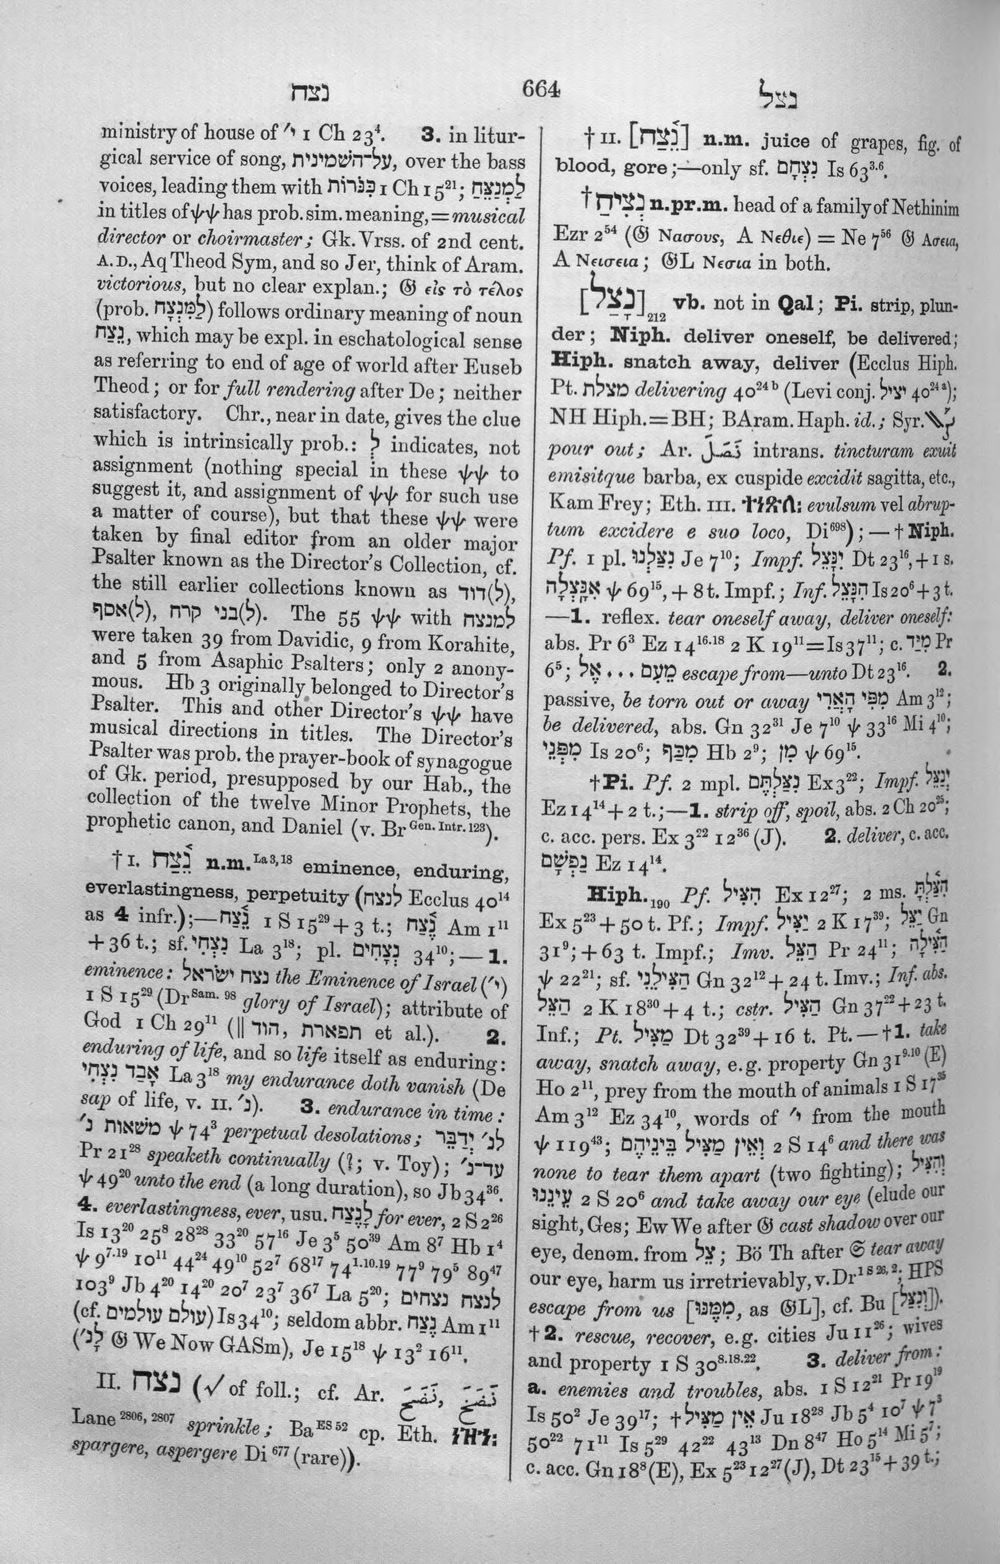 נצח
664
נצל
ministry of house of ′י 1 Ch 23⁴. 3. in litur-
gical service of song, עַל־הַשְּׁמִינִית, over the bass
voices, leading them with כִּנֹּרוֹת 1 Ch 15²¹; לְנַצֵּחַ
in titles of ψψ has prob. sim. meaning, = musical
director or choirmaster; Gk. Vrss. of 2nd cent.
A.D., Aq Theod Sym, and so Jer, think of Aram.
victorious, but no clear explan.; 𝔊 εἰς τὸ τέλος
(prob. לַמְנַצֵּחַ) follows ordinary meaning of noun
נֵצַח, which may be expl. in eschatological sense
as referring to end of age of world after Euseb
Theod; or for full rendering after De; neither
satisfactory. Chr., near in date, gives the clue
which is intrinsically prob.: לְ indicates, not
assignment (nothing special in these ψψ to
suggest it, and assignment of ψψ for such use
a matter of course), but that these ψψ were
taken by final editor from an older major
Psalter known as the Director's Collection, cf.
the still earlier collections known as (ל)דוד,
(ל)בני קרח, (ל)אסף. The 55 ψψ with למנצח
were taken 39 from Davidic, 9 from Korahite,
and 5 from Asaphic Psalters; only 2 anony-
mous. Hb 3 originally belonged to Director's
Psalter. This and other Director's ψψ have
musical directions in titles. The Director's
Psalter was prob. the prayer-book of synagogue
of Gk. period, presupposed by our Hab., the
collection of the twelve Minor Prophets, the
prophetic canon, and Daniel (v. Br Gen. Intr. 123).
† I. נֵצַח n.m. La 3, 18 eminence, enduring,
everlastingness, perpetuity (לנצח Ecclus 40¹⁴
as 4 infr.);—נֵצַח 1 S 15²⁹ + 3 t.; נֶצַח Am 1¹¹
+ 36 t.; sf. נִצְחִי La 3¹⁸; pl. נְצָחִים 34¹⁰;—1.
eminence: נצח ישׂראל the Eminence of Israel (′י)
1 S 15²⁹ (Dr Sam. 98 glory of Israel); attribute of
God 1 Ch 29¹¹ (‖ הוד, תפארת et al.). 2.
enduring of life, and so life itself as enduring:
אָבַד נִצְחִי La 3¹⁸ my endurance doth vanish (De
sap of life, v. II. ′נ). 3. endurance in time:
משאות נ′ ψ 74³ perpetual desolations; לנ′ יְדַבֵּר
Pr 21²⁸ speaketh continually (?; v. Toy); עד־נ′
ψ 49²⁰ unto the end (a long duration), so Jb 34³⁶.
4. everlastingness, ever, usu. לָנֶצַח for ever, 2 S 2²⁶
Is 13²⁰ 25⁸ 28²⁸ 33²⁰ 57¹⁶ Je 3⁵ 50³⁹ Am 8⁷ Hb 1⁴
ψ 9⁷·¹⁹ 10¹¹ 44²⁴ 49¹⁰ 52⁷ 68¹⁷ 74¹·¹⁰·¹⁹ 77⁹ 79⁵ 89⁴⁷
103⁹ Jb 4²⁰ 14²⁰ 20⁷ 23⁷ 36⁷ La 5²⁰; לנצח נצחים
(cf. עולם עולמים) Is 34¹⁰; seldom abbr. נֶצַח Am 1¹¹
(לָנ′ 𝔊 We Now GASm), Je 15¹⁸ ψ 13² 16¹¹.
II. נצח (√ of foll.; cf. Ar. نَضَحَ, نَضَخَ
Lane 2806, 2807 sprinkle; Ba ES 52 cp. Eth. ነዝኀ:
spargere, aspergere Di 677 (rare)).
† II. [נֵצַח] n.m. juice of grapes, fig. of
blood, gore;—only sf. נִצְחָם Is 63³·⁶.
† נְצִיחַ n.pr.m. head of a family of Nethinim
Ezr 2⁵⁴ (𝔊 Νασους, A Νεθιε) = Ne 7⁵⁶ 𝔊 Ασεια,
A Νεισεια; 𝔊L Νεσια in both.
[נָצַל] 212 vb. not in Qal; Pi. strip, plun-
der; Niph. deliver oneself, be delivered;
Hiph. snatch away, deliver (Ecclus Hiph.
Pt. מצלת delivering 40²⁴ᵇ (Levi conj. יציל 40²⁴ᵃ);
NH Hiph. = BH; BAram. Haph. id.; Syr.
pour out; Ar. نَصَلَ intrans. tincturam exuit
emisitque barba, ex cuspide excidit sagitta, etc.,
Kam Frey; Eth. III. ተነጽለ: evulsum vel abrup-
tum excidere e suo loco, Di⁶⁹⁸);—† Niph.
Pf. 1 pl. נִצַּלְנוּ Je 7¹⁰; Impf. יִנָּצֵל Dt 23¹⁶, + 1 s.
אִנָּצְלָה ψ 69¹⁵, + 8 t. Impf.; Inf. הִנָּצֵל Is 20⁶ + 3 t.
—1. reflex. tear oneself away, deliver oneself:
abs. Pr 6³ Ez 14¹⁶·¹⁸ 2 K 19¹¹ = Is 37¹¹; c. מִיָּד Pr
6⁵; מֵעִם ... אֶל escape from—unto Dt 23¹⁶. 2.
passive, be torn out or away מִפִּי הָאֲרִי Am 3¹²;
be delivered, abs. Gn 32³¹ Je 7¹⁰ ψ 33¹⁶ Mi 4¹⁰;
מִפְּנֵי Is 20⁶; מִכַּף Hb 2⁹; מִן ψ 69¹⁵.
† Pi. Pf. 2 mpl. נִצַּלְתֶּם Ex 3²²; Impf. יְנַצֵּל
Ez 14¹⁴ + 2 t.;—1. strip off, spoil, abs. 2 Ch 20²⁵;
c. acc. pers. Ex 3²² 12³⁶ (J). 2. deliver, c. acc.
נַפְשָׁם Ez 14¹⁴.
Hiph. 190 Pf. הִצִּיל Ex 12²⁷; 2 ms. הִצַּלְתָּ
Ex 5²³ + 50 t. Pf.; Impf. יַצִּיל 2 K 17³⁹; יַצֵּל Gn
31⁹; + 63 t. Impf.; Imv. הַצֵּל Pr 24¹¹; הַצִּילָה
ψ 22²¹; sf. הַצִּילֵנִי Gn 32¹² + 24 t. Imv.; Inf. abs.
הַצֵּל 2 K 18³⁰ + 4 t.; cstr. הַצִּיל Gn 37²² + 23 t.
Inf.; Pt. מַצִּיל Dt 32³⁹ + 16 t. Pt.—†1. take
away, snatch away, e.g. property Gn 31⁹·¹⁰ (E)
Ho 2¹¹, prey from the mouth of animals 1 S 17³⁵
Am 3¹² Ez 34¹⁰, words of ′י from the mouth
ψ 119⁴³; וְאֵין מַצִּיל בֵּינֵיהֶם 2 S 14⁶ and there was
none to tear them apart (two fighting); וְהִצִּיל
עֵינֵנוּ 2 S 20⁶ and take away our eye (elude our
sight, Ges; Ew We after 𝔊 cast shadow over our
eye, denom. from צֵל; Bö Th after 𝔖 tear away
our eye, harm us irretrievably, v. Dr 1 S 26, 2; HPS
escape from us [מִמֶּנּוּ, as 𝔊L], cf. Bu [וְנִצַּל]).
†2. rescue, recover, e.g. cities Ju 11²⁶; wives
and property 1 S 30⁸·¹⁸·²². 3. deliver from:
a. enemies and troubles, abs. 1 S 12²¹ Pr 19¹⁹
Is 50² Je 39¹⁷; † אֵין מַצִּיל Ju 18²⁸ Jb 5⁴ 10⁷ ψ 7³
50²² 71¹¹ Is 5²⁹ 42²² 43¹³ Dn 8⁴⁷ Ho 5¹⁴ Mi 5⁷;
c. acc. Gn 18⁸ (E), Ex 5²³ 12²⁷ (J), Dt 23¹⁵ + 39 t.;